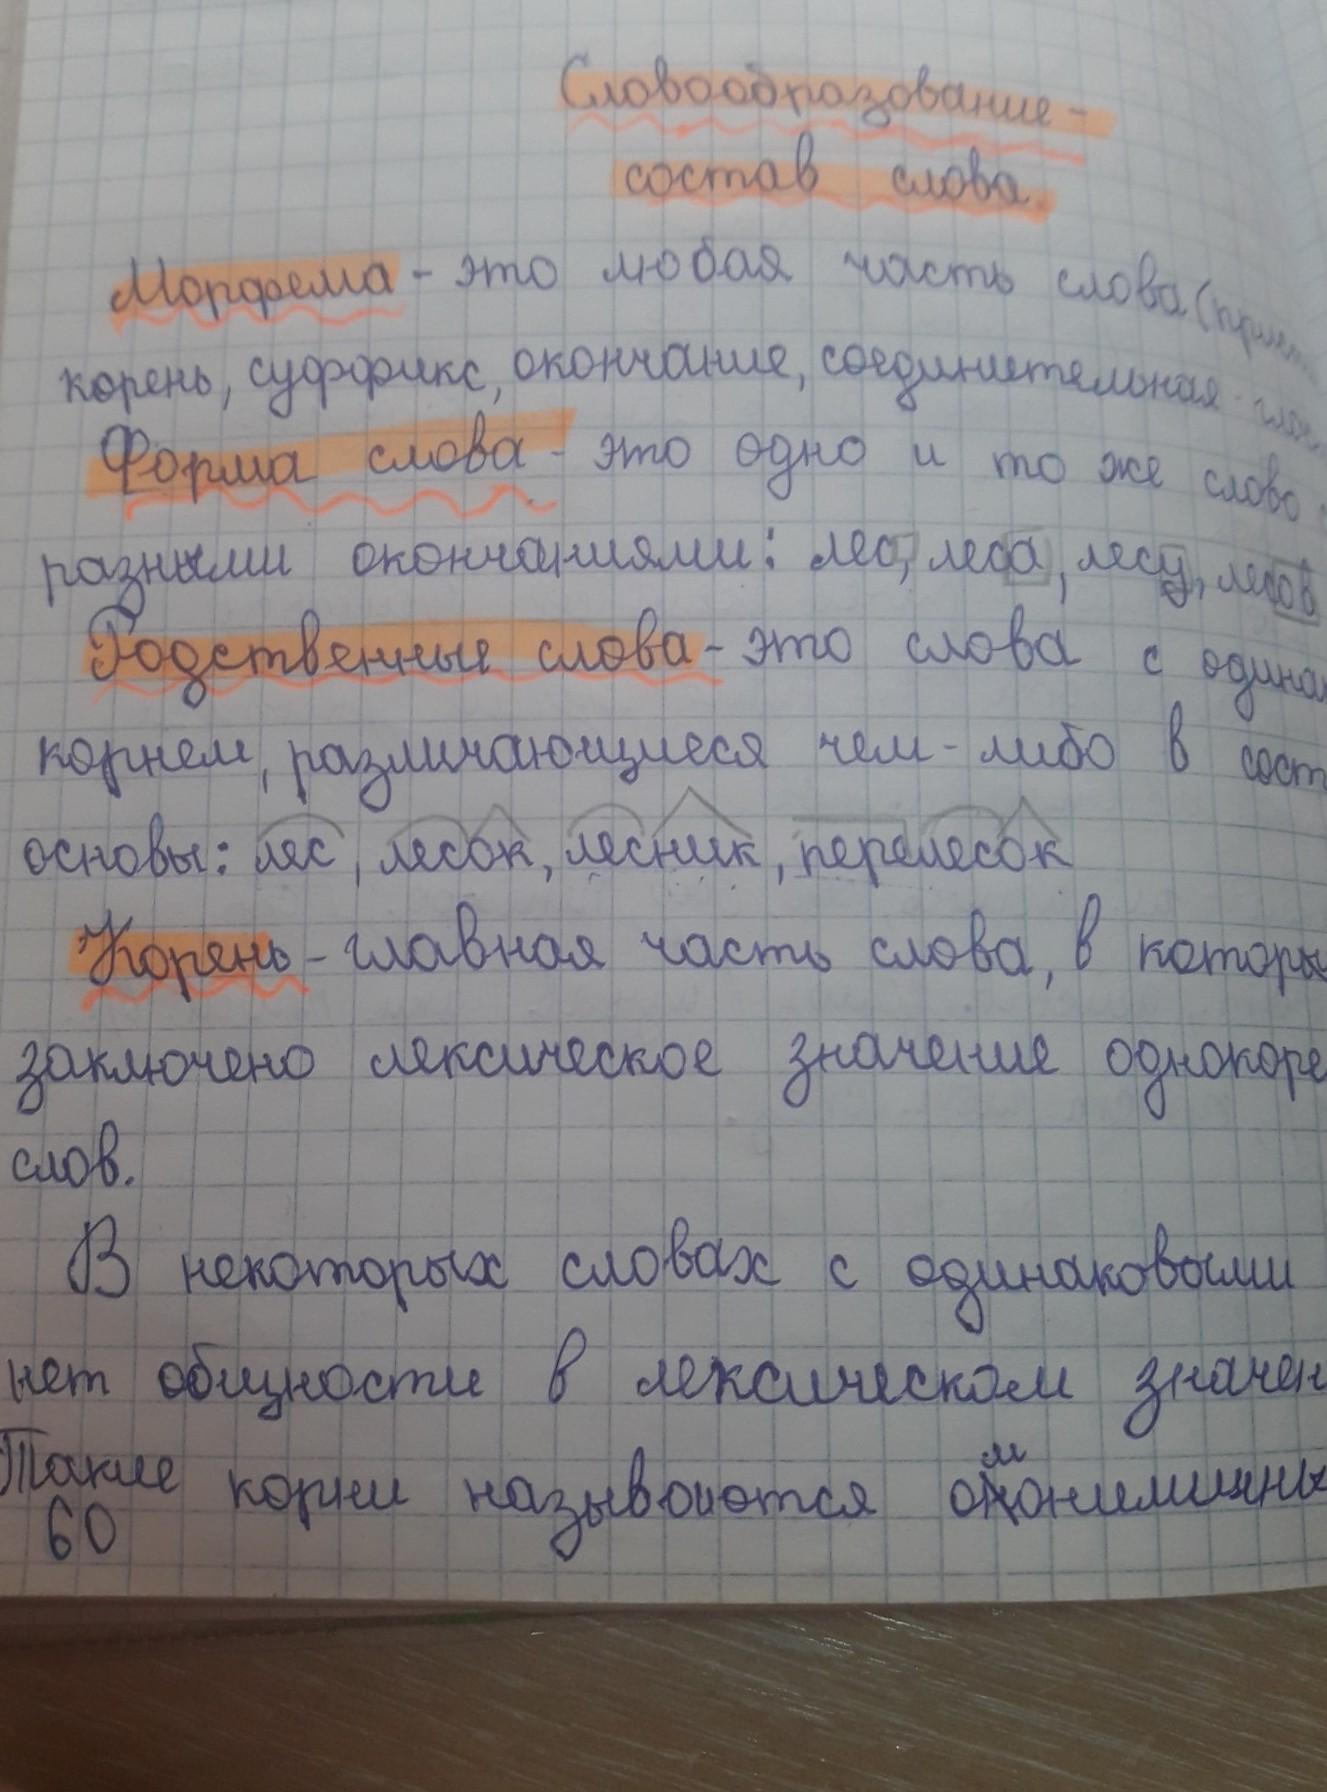 Словообразование -
состав слова.
Морфема - это любая часть слова (
корень, суффикс, окончание, соединительная
Форма слова - это одно и то же слово
разными окончаниями: лес, леса, лесу, лесов
Родственные слова - это слова с одина
корнем, различающиеся чем-либо в сост
основы: лес, лесок, лесник, перелесок
Корень - главная часть слова, в которы
заключено лексическое значение однокоре
слов.
В некоторых словах с одинаковыми
нет общности в лексическом значен
Такие корни называются омонимичны
60